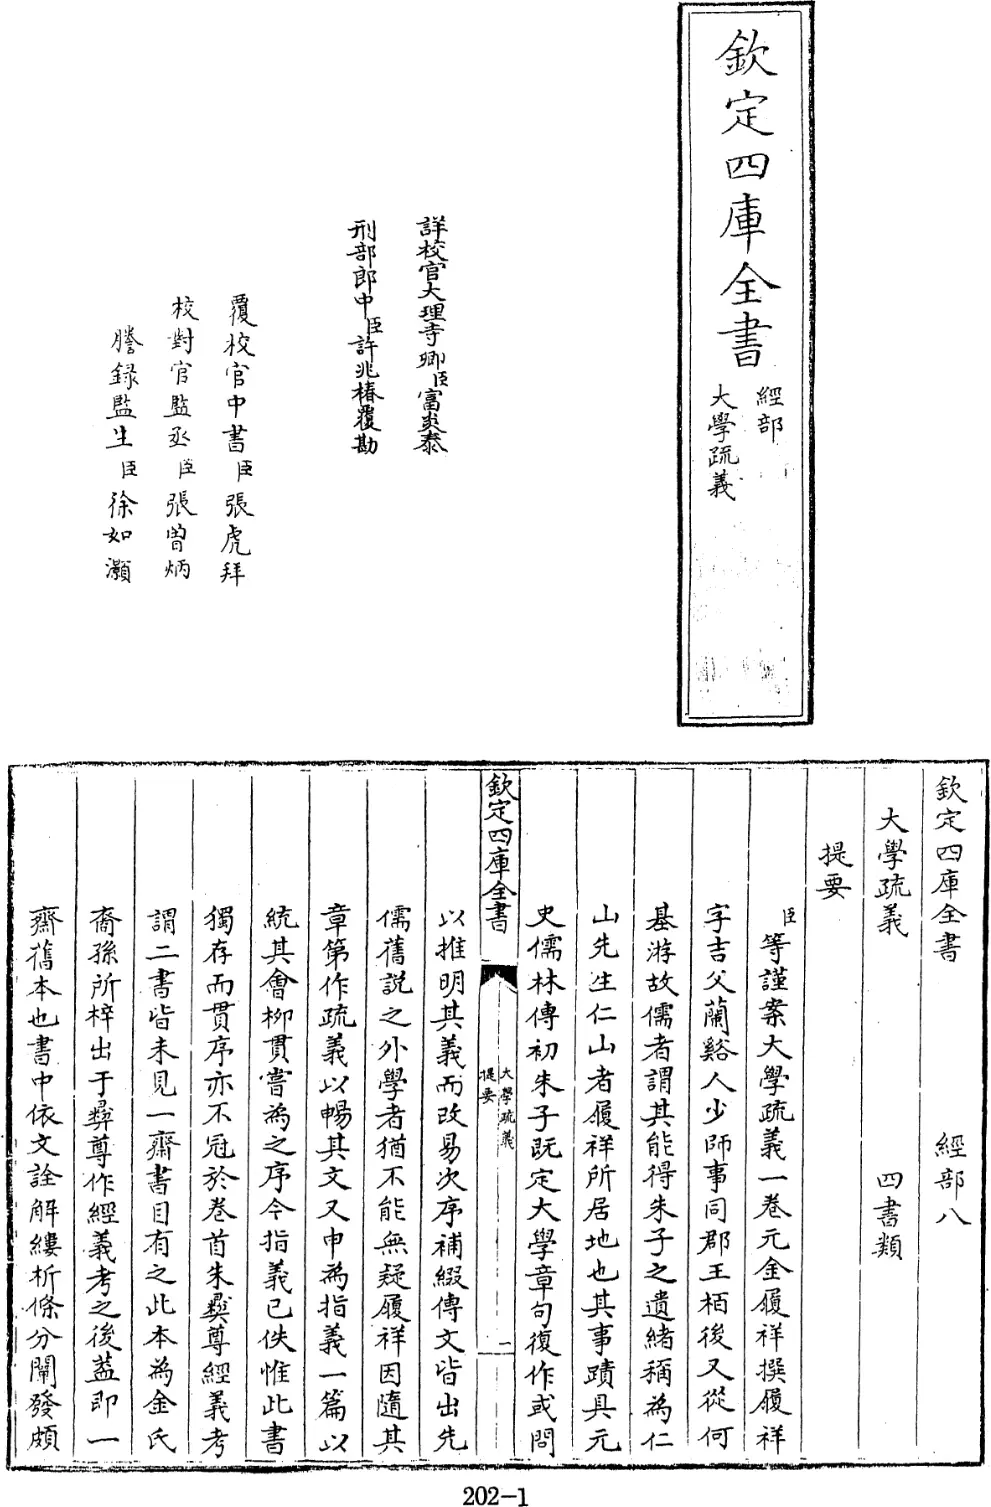 欽定四庫全書
經部
大學疏義
詳校官大理寺卿臣富炎泰
刑部郎中臣許兆椿覆勘
覆校官中書臣張虎拜
校對官監丞臣張曾炳
謄錄監生臣徐如灝
欽定四庫全書 經部八
大學疏義 四書類
提要
臣等謹案大學疏義一卷元金履祥撰履祥
字吉父蘭谿人少師事同郡王栢後又從何
基游故儒者謂其能得朱子之遺緒稱為仁
山先生仁山者履祥所居地也其事蹟具元
史儒林傳初朱子既定大學章句復作或問
欽定四庫全書
大學疏義
提要
一
以推明其義而改易次序補綴傳文皆出先
儒舊說之外學者猶不能無疑履祥因隨其
章第作疏義以暢其文又申為指義一篇以
統其會柳貫嘗為之序今指義已佚惟此書
獨存而貫序亦不冠於卷首朱彝尊經義考
謂二書皆未見一齋書目有之此本為金氏
裔孫所梓出于彝尊作經義考之後蓋即一
齋舊本也書中依文詮解縷析條分闡發頗
202-1